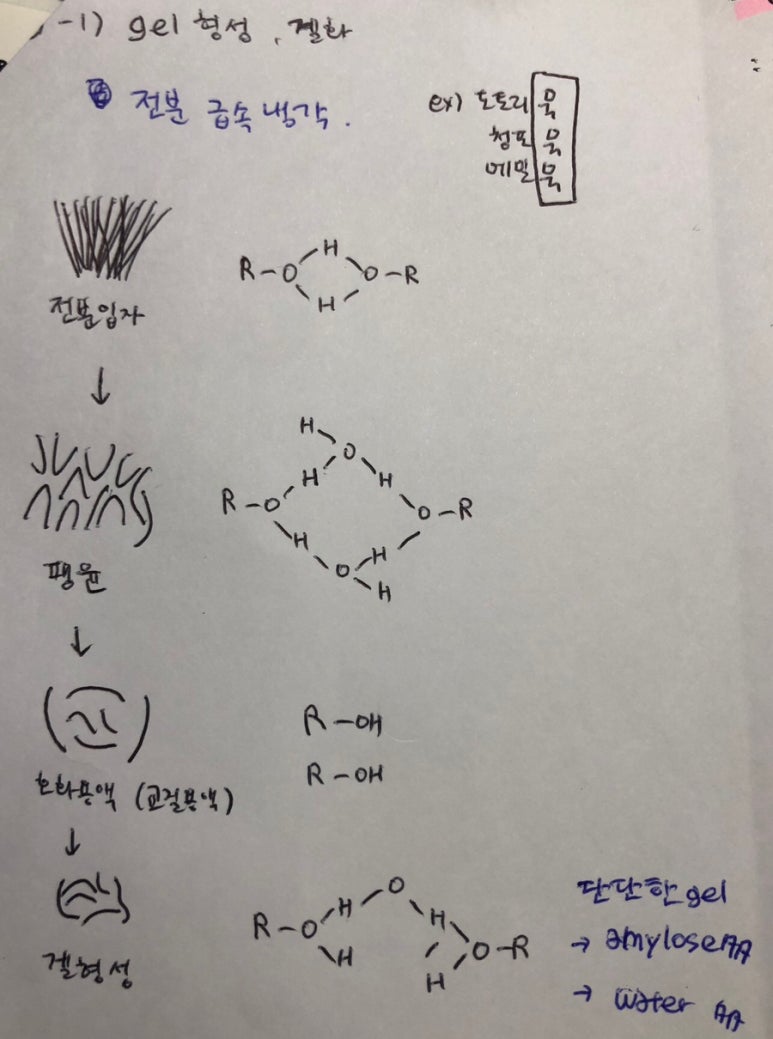 -1) gel 형성, 겔화
전분 급속 냉각.
ex) 도토리 묵
청포 묵
메밀 묵
R-O H H O-R
전분입자
↓
H O
H H
R-O O-R
H H
O H
팽윤
↓
R-OH
R-OH
호화용액 (교질용액)
↓
O
H H
R-O O-R
H H
겔형성
단단한 gel
→ amylose
→ water